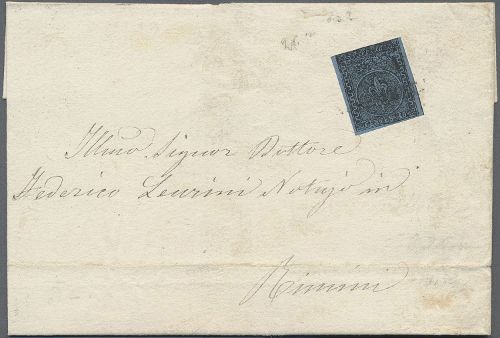 Illmo Signor Dottore
Federico Leurini Notajo in
Rimini